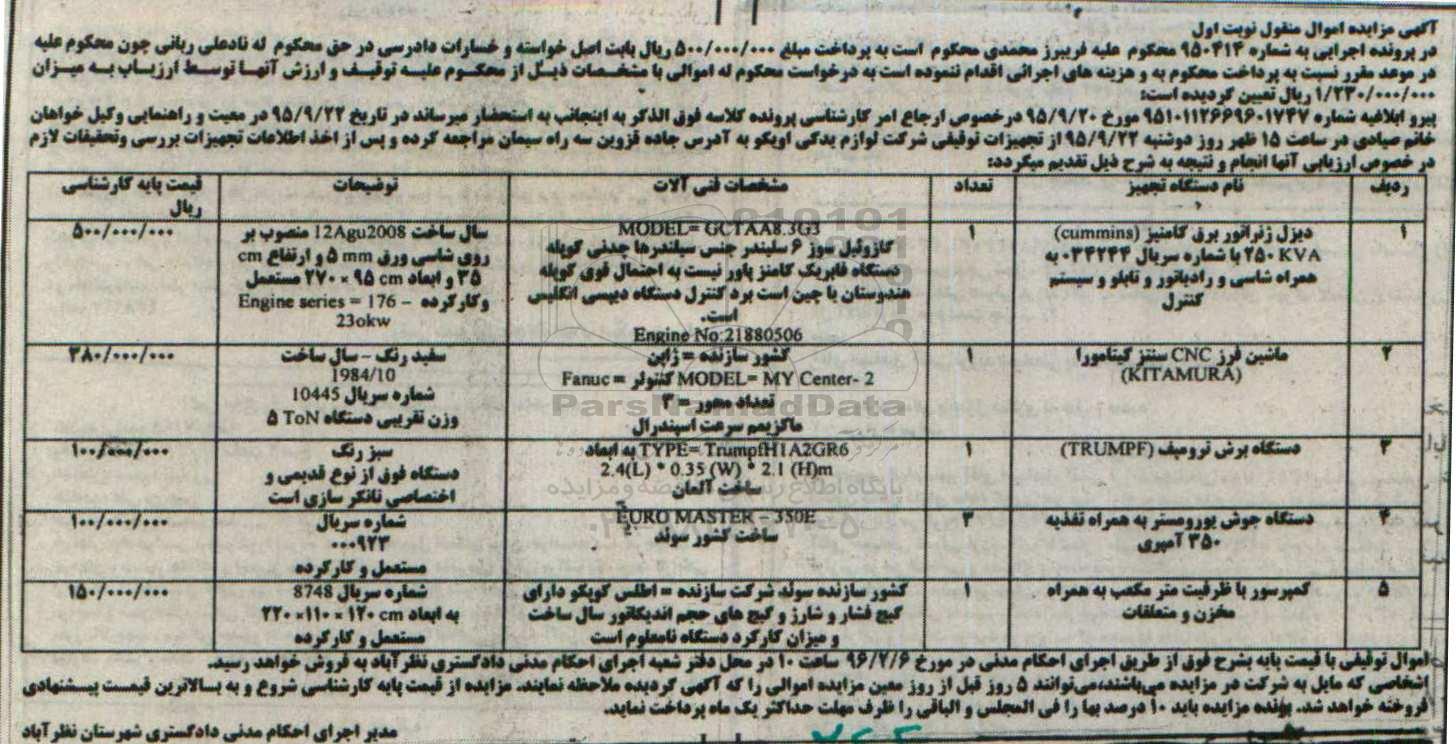 آگهی مزایده اموال منقول نوبت اول
در پرونده اجرایی به شماره ۹۵۰۴۱۴ محکوم علیه فریبرز محمدی محکوم است به پرداخت مبلغ ۵۰۰/۰۰۰/۰۰۰ ریال بابت اصل خواسته و خسارات دادرسی در حق محکوم له نادعلی ربانی چون محکوم علیه
در موعد مقرر نسبت به پرداخت محکوم به و هزینه های اجرائی اقدام ننموده است به درخواست محکوم له اموالی با مشخصات ذیل از محکوم علیه توقیف و ارزش آنها توسط ارزیاب به میزان
۱/۲۳۰/۰۰۰/۰۰۰ ریال تعیین گردیده است:
پیرو ابلاغیه شماره ۹۵۱۰۱۱۲۶۶۹۶۰۱۷۴۷ مورخ ۹۵/۹/۲۰ درخصوص ارجاع امر کارشناسی پرونده کلاسه فوق الذکر به اینجانب به استحضار میرساند در تاریخ ۹۵/۹/۲۲ در معیت و راهنمایی وکیل خواهان
خانم صیادی در ساعت ۱۵ ظهر روز دوشنبه ۹۵/۹/۲۲ از تجهیزات توقیفی شرکت لوازم یدکی اویکو به آدرس جاده قزوین سه راه سیمان مراجعه کرده و پس از اخذ اطلاعات تجهیزات بررسی وتحقیقات لازم
در خصوص ارزیابی آنها انجام و نتیجه به شرح ذیل تقدیم میگردد:
ردیف نام دستگاه تجهیز تعداد مشخصات فنی آلات توضیحات قیمت پایه کارشناسی
ریال
۱ دیزل ژنراتور برق کامنیز (cummins) ۱ MODEL= GCTAA8.3G3 سال ساخت 12Agu2008 منصوب بر ۵۰۰/۰۰۰/۰۰۰
۲۵۰ KVA با شماره سریال ۰۳۴۲۴۴ به گازوئیل سوز ۶ سلیندر جنس سیلندرها چدنی کوپله روی شاسی ورق ۵ mm و ارتفاع cm
همراه شاسی و رادیاتور و تابلو و سیستم دستگاه فابریک کامنز پاور نیست به احتمال قوی کوپله ۳۵ و ابعاد ۹۵ cm × ۲۷۰ مستعمل
کنترل هندوستان یا چین است برد کنترل دستگاه دیپسی انگلیس وکارکرده – Engine series = 176
است. 23okw
Engine No:21880506
۲ ماشین فرز CNC سنتز کیتامورا ۱ کشور سازنده = ژاپن سفید رنگ – سال ساخت ۳۸۰/۰۰۰/۰۰۰
(KITAMURA) MODEL= MY Center- 2 کنتولر = Fanuc 1984/10
تعداد محور = ۳ شماره سریال 10445
ماگزیمم سرعت اسپندرال وزن تقریبی دستگاه ۵ ToN
۳ دستگاه برش ترومپف (TRUMPF) ۱ TYPE= TrumpfH1A2GR6 به ابعاد سبز رنگ ۱۰۰/۰۰۰/۰۰۰
2.4(L) * 0.35 (W) * 2.1 (H)m دستگاه فوق از نوع قدیمی و
ساخت آلمان اختصاصی تانکر سازی است
۴ دستگاه جوش یورومستر به همراه تغذیه ۳ EURO MASTER – 350E شماره سریال ۱۰۰/۰۰۰/۰۰۰
۳۵۰ آمپری ساخت کشور سوئد ۰۰۰۹۲۳
مستعمل و کارکرده
۵ کمپرسور با ظرفیت متر مکعب به همراه ۱ کشور سازنده سوئد شرکت سازنده = اطلس کوپکو دارای شماره سریال 8748 ۱۵۰/۰۰۰/۰۰۰
مخزن و متعلقات گیج فشار و شارژ و گیج های حجم اندیکاتور سال ساخت به ابعاد ۱۲۰ cm ×۱۱۰× ۲۲۰
و میزان کارکرد دستگاه نامعلوم است مستعمل و کارکرده
اموال توقیفی با قیمت پایه بشرح فوق از طریق اجرای احکام مدنی در مورخ ۹۶/۷/۶ ساعت ۱۰ در محل دفتر شعبه اجرای احکام مدنی دادگستری نظرآباد به فروش خواهد رسید.
اشخاصی که مایل به شرکت در مزایده می‌باشند،می‌توانند ۵ روز قبل از روز معین مزایده اموالی را که آگهی گردیده ملاحظه نمایند. مزایده از قیمت پایه کارشناسی شروع و به بالاترین قیمت پیشنهادی
فروخته خواهد شد. برنده مزایده باید ۱۰ درصد بها را فی المجلس و الباقی را ظرف مهلت حداکثر یک ماه پرداخت نماید.
مدیر اجرای احکام مدنی دادگستری شهرستان نظرآباد
ParsNamadData